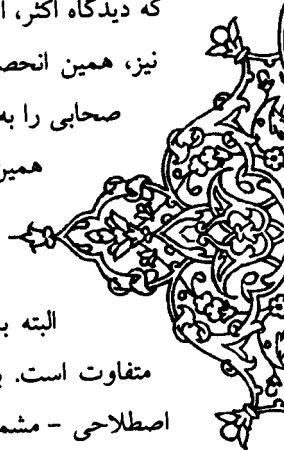 که دیدگاه اکثر، ا
نیز، همین انحص
صحابی را به
همین
البته ب
متفاوت است. ب
اصطلاحی - مشم